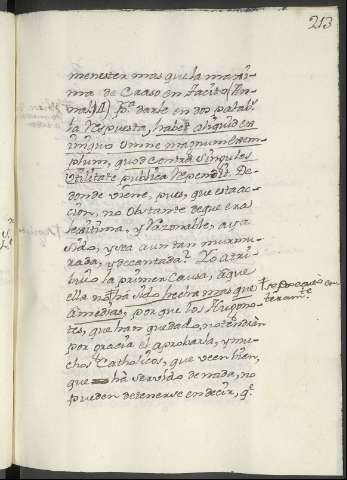 213
menester mas que la maxi-
ma de Casio en Tacito (An-
nal. 14) Pª darle en dos palabˢ
la respuesta, habet aliquid ex
iniquo omne magnum exem-
plum, quod contra singulos
utilitate publica rependit. De-
donde viene, pues, que esta ac-
ción, no obstante de que era
legitima, y razonable, aya
sido, y sea aun tan murmu-
rada, y decantada? Yo atri-
buio la primera causa, à que
ella no ha sido hecha mas que
à medias, por que los Hugono-
tes, que han quedado, no tendràn
por gracia el aprobarla, y mu-
chos Catholicos, que veen bien,
que ha servido de nada, no
pueden detenerse en decir, qᵉ